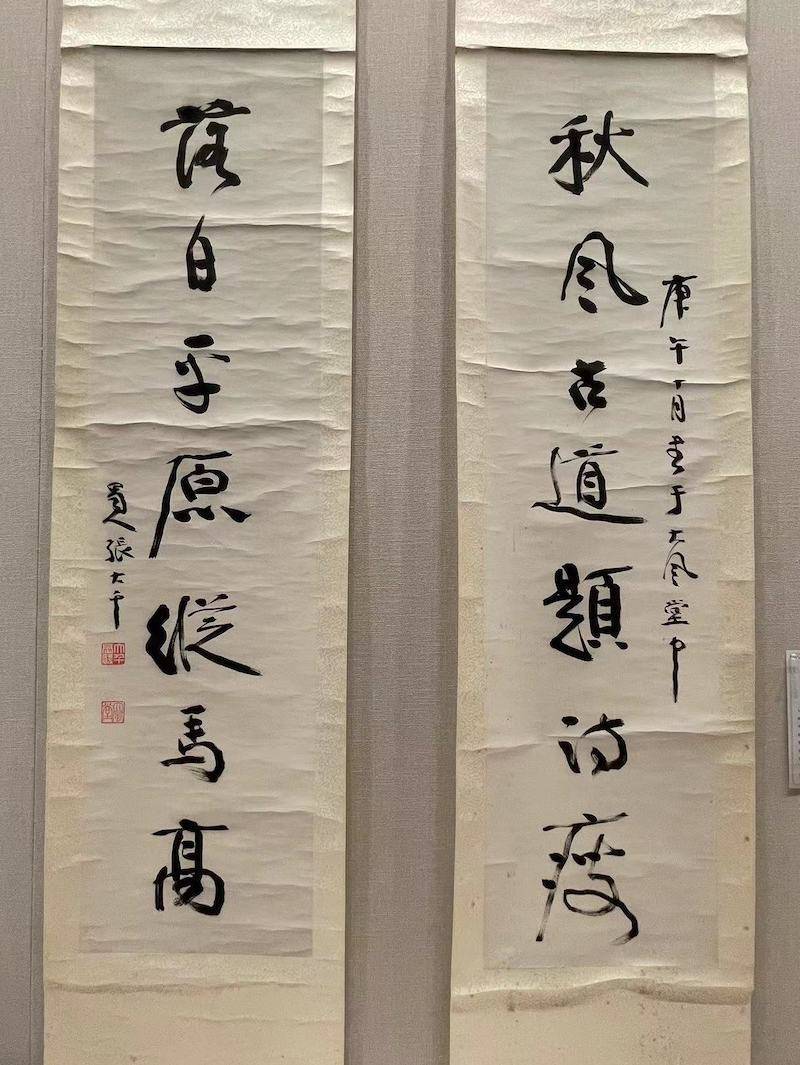 庚午十月書于大風堂中
秋風古道題詩瘦
落日平原縱馬高
蜀人張大千